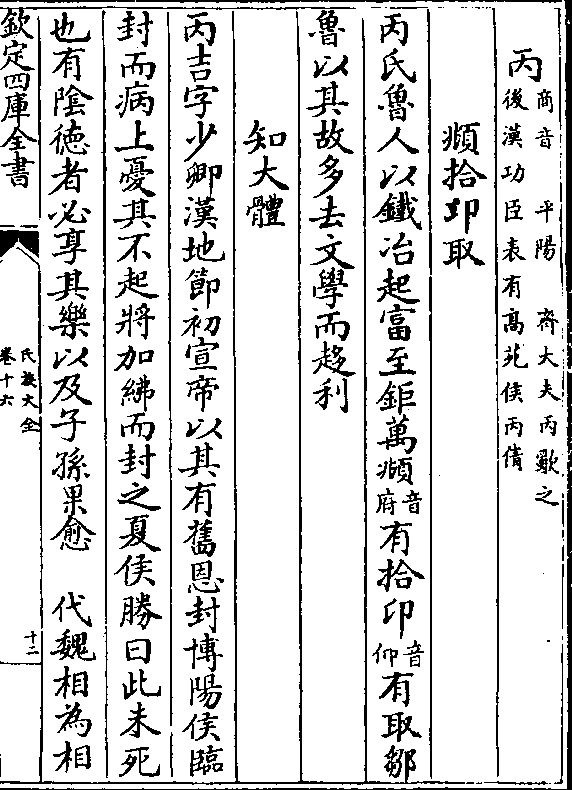 丙 商音 平陽 齊大夫丙歜之
後漢功臣表有高苑侯丙倩
頫拾卬取
丙氏魯人以鐵冶起富至鉅萬頫音府有拾卬音仰有取鄒
魯以其故多去文學而趍利
知大體
丙吉字少卿漢地節初宣帝以其有舊恩封博陽侯臨
封而病上憂其不起將加紼而封之夏侯勝曰此未死
也有陰德者必享其樂以及子孫果愈 代魏相為相
欽定四庫全書
氏族大全
卷十六
十二